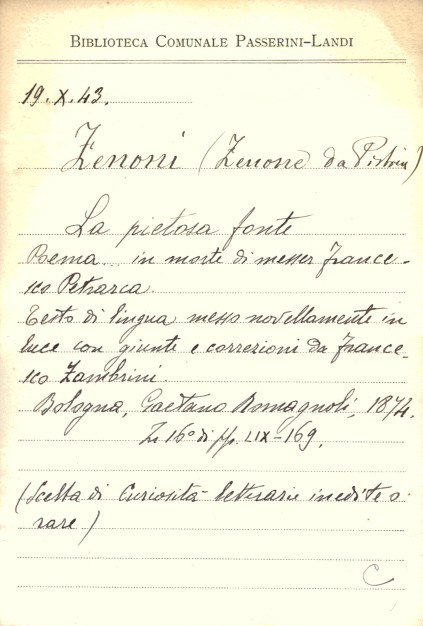 BIBLIOTECA COMUNALE PASSERINI-LANDI
19.X.43.
Zenoni (Zenone da Pistoia)
La pietosa fonte
Poema... in morte di messer France-
sco Petrarca.
Testo di lingua messo novellamente in
luce con giunte e correzioni da France-
sco Zambrini.
Bologna, Gaetano Romagnoli, 1874.
In 16° di pp. LIX-169.
(Scelta di curiosità letterarie inedite o
rare)
C